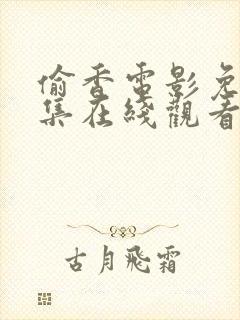 偷香電影免
集在綫觀看
古月飛霜